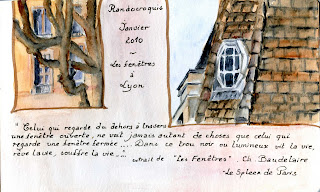 Randocroquis
Janvier
2010
~
Les fenêtres
à
Lyon
" Celui qui regarde du dehors à travers
une fenêtre ouverte, ne voit jamais autant de choses que celui qui
regarde une fenêtre fermée .... Dans ce trou noir ou lumineux vit la vie,
rêve la vie, souffre la vie "...
extrait de "Les Fenêtres" Ch. Baudelaire
-Le Spleen de Paris